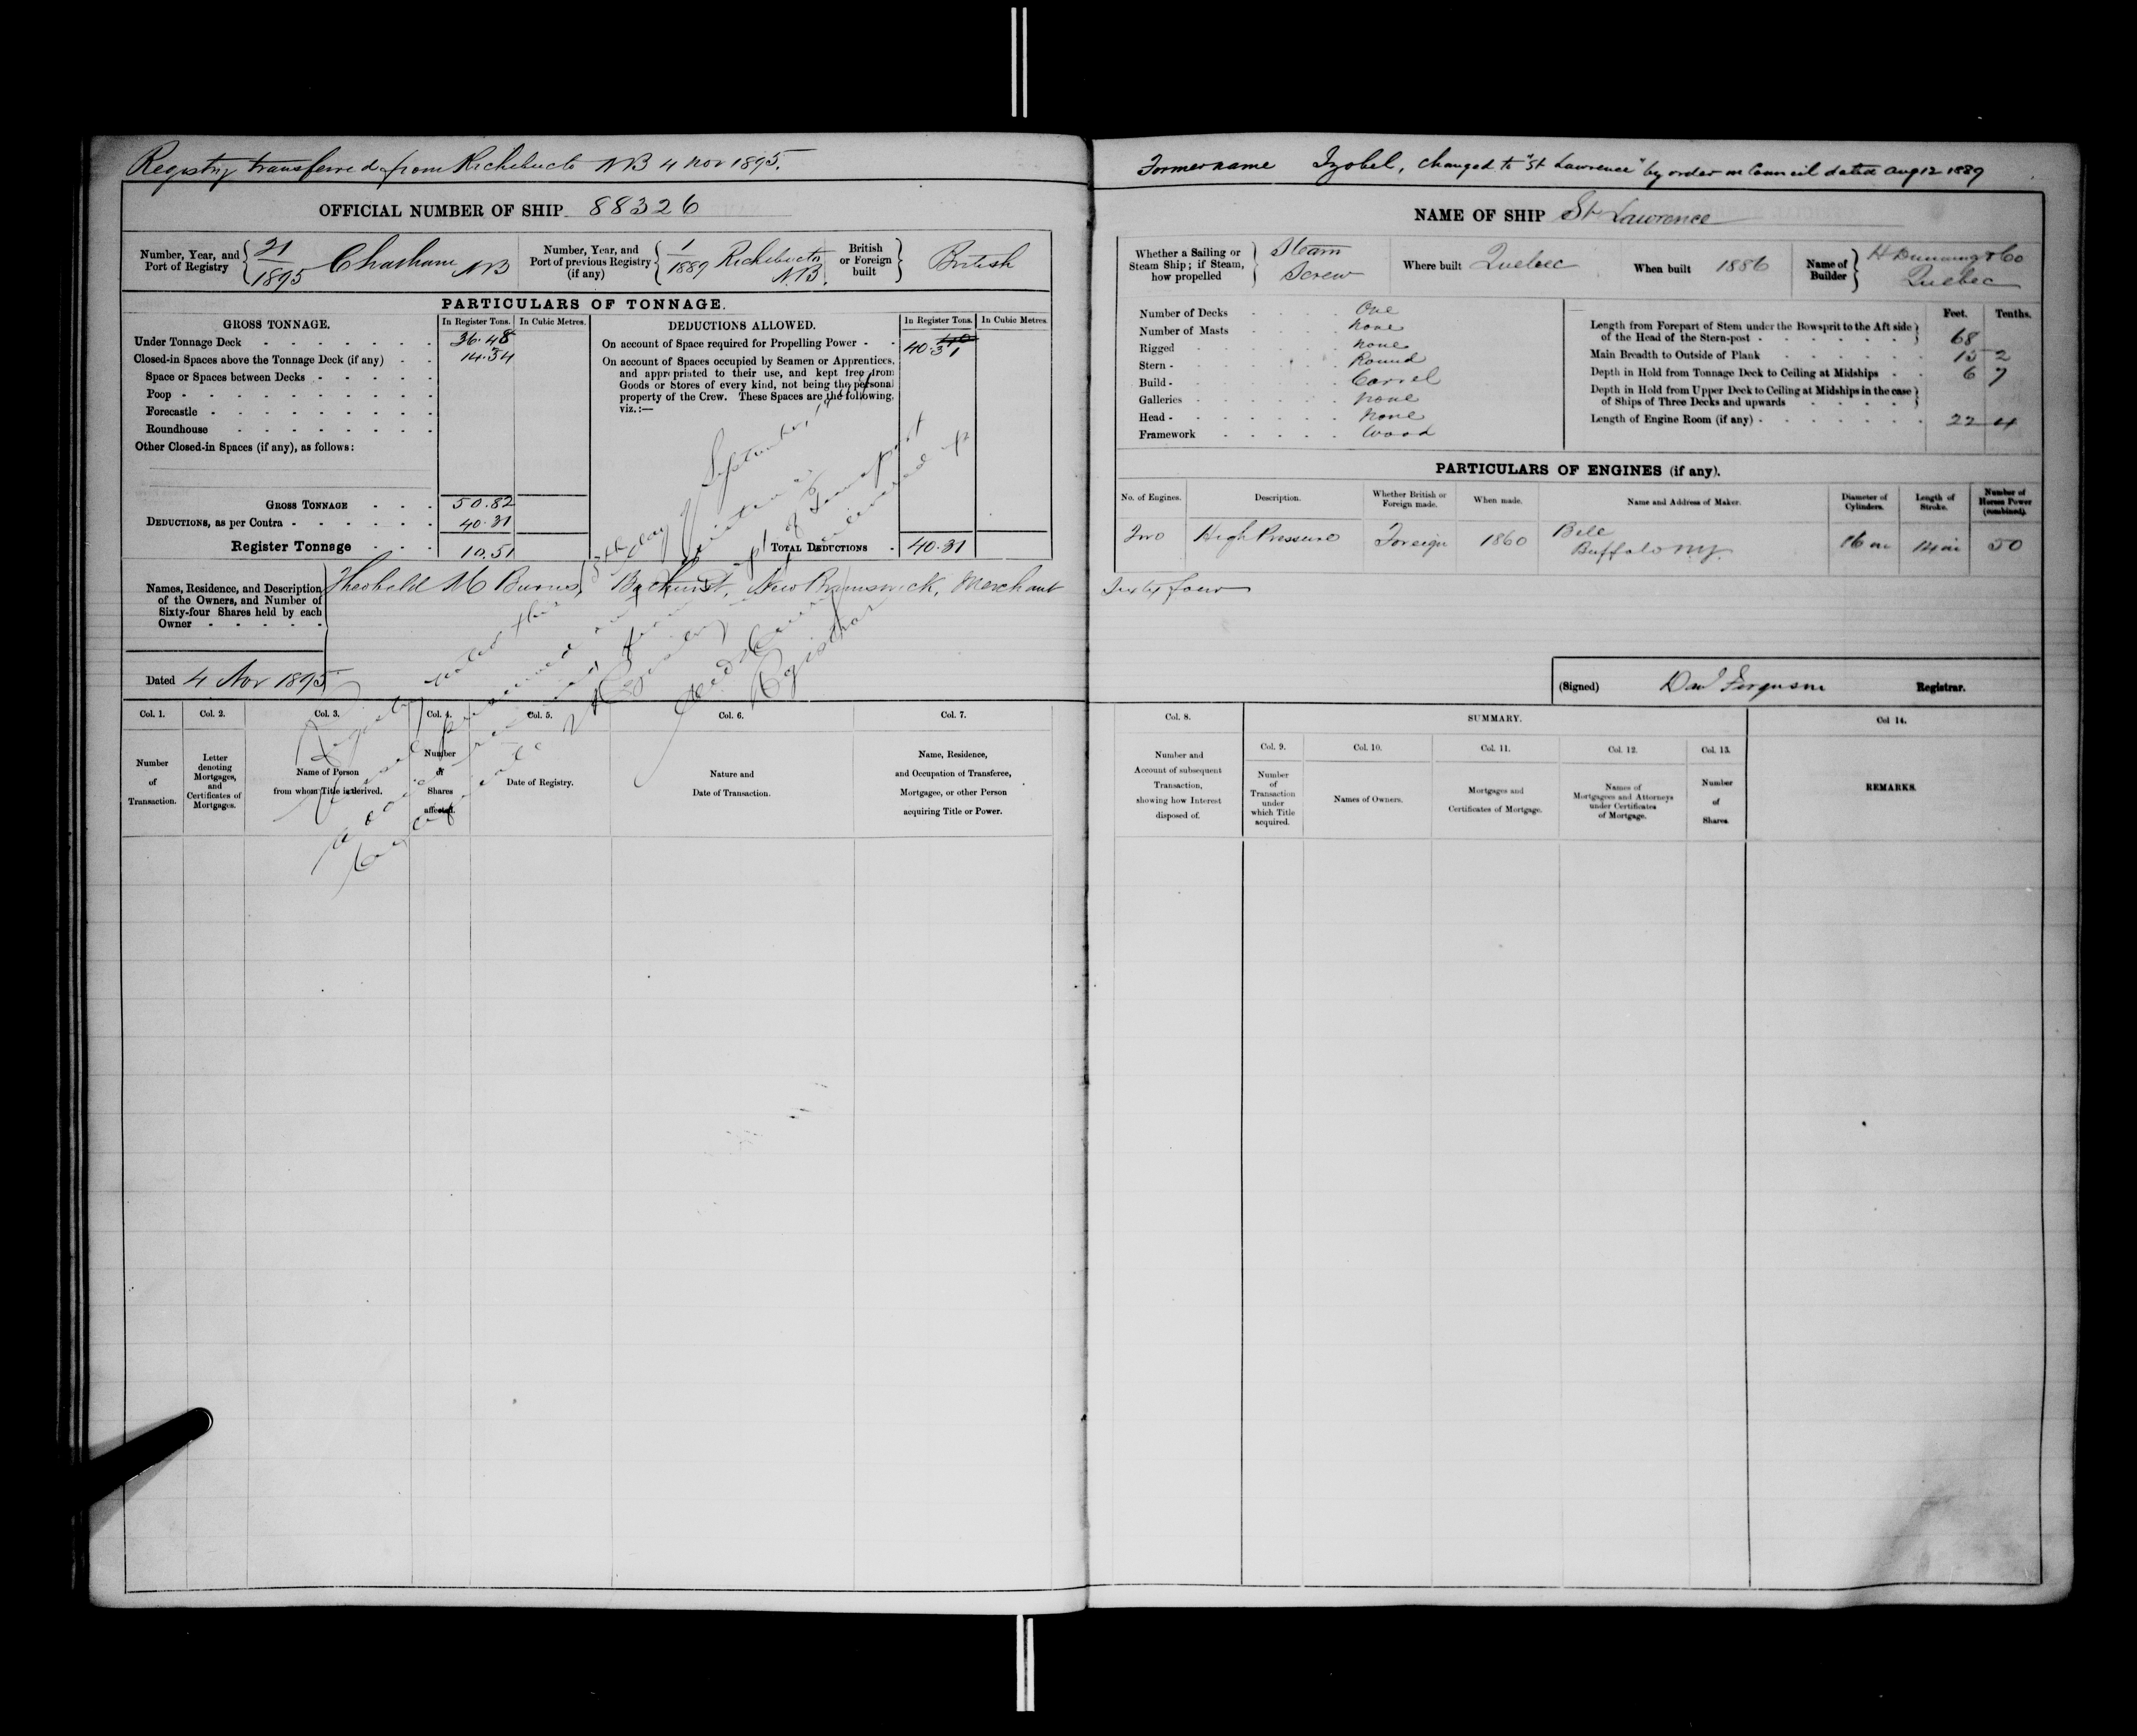 Registry transferred from Richibucto NB 4 Nov 1895.
OFFICIAL NUMBER OF SHIP 88326
Number, Year, and Port of Registry 21/1895 Chatham NB
Number, Year, and Port of previous Registry (if any) 1/1889 Richibucto N.B.
British or Foreign built British
PARTICULARS OF TONNAGE.
GROSS TONNAGE.
In Register Tons. In Cubic Metres.
Under Tonnage Deck 36.48
Closed-in Spaces above the Tonnage Deck (if any) 14.34
Space or Spaces between Decks
Poop
Forecastle
Roundhouse
Other Closed-in Spaces (if any), as follows:
GROSS TONNAGE 50.82
DEDUCTIONS, as per Contra 40.31
Register Tonnage 10.51
DEDUCTIONS ALLOWED.
In Register Tons. In Cubic Metres.
On account of Space required for Propelling Power 40.31
On account of Spaces occupied by Seamen or Apprentices,
and appropriated to their use, and kept free from
Goods or Stores of every kind, not being the personal
property of the Crew. These Spaces are the following,
viz.:—
TOTAL DEDUCTIONS 40.31
Names, Residence, and Description
of the Owners, and Number of
Sixty-four Shares held by each
Owner
Theobald M Burns, Bathurst, New Brunswick, Merchant Sixty four
Dated 4 Nov 1895
Registrar
Col. 1. Col. 2. Col. 3. Col. 4. Col. 5. Col. 6. Col. 7.
Number of Transaction.
Letter denoting Mortgages, and Certificates of Mortgages.
Name of Person from whom Title is derived.
Number of Shares affected.
Date of Registry.
Nature and Date of Transaction.
Name, Residence, and Occupation of Transferee, Mortgagee, or other Person acquiring Title or Power.
Former name Izobel, changed to "St Lawrence" by order in Council dated Aug 12 1889
NAME OF SHIP St Lawrence
Whether a Sailing or Steam Ship; if Steam, how propelled Steam Screw
Where built Quebec
When built 1886
Name of Builder H Dunning & Co Quebec
Number of Decks One
Number of Masts None
Rigged None
Stern Round
Build Carvel
Galleries None
Head None
Framework Wood
Feet. Tenths.
Length from Forepart of Stem under the Bowsprit to the Aft side of the Head of the Stern-post 68
Main Breadth to Outside of Plank 15 2
Depth in Hold from Tonnage Deck to Ceiling at Midships 6 7
Depth in Hold from Upper Deck to Ceiling at Midships in the case of Ships of Three Decks and upwards
Length of Engine Room (if any) 22 4
PARTICULARS OF ENGINES (if any).
No. of Engines. Description. Whether British or Foreign made. When made. Name and Address of Maker. Diameter of Cylinders. Length of Stroke. Number of Horses Power (combined).
Two High Pressure Foreign 1860 Bell Buffalo NY. 16 in 14 in 50
(Signed) Dad Ferguson Registrar.
Col. 8. SUMMARY. Col 14.
Col. 9. Col. 10. Col. 11. Col. 12. Col. 13.
Number and Account of subsequent Transaction, showing how Interest disposed of.
Number of Transaction under which Title acquired.
Names of Owners.
Mortgages and Certificates of Mortgage.
Names of Mortgagees and Attorneys under Certificates of Mortgage.
Number of Shares
REMARKS.